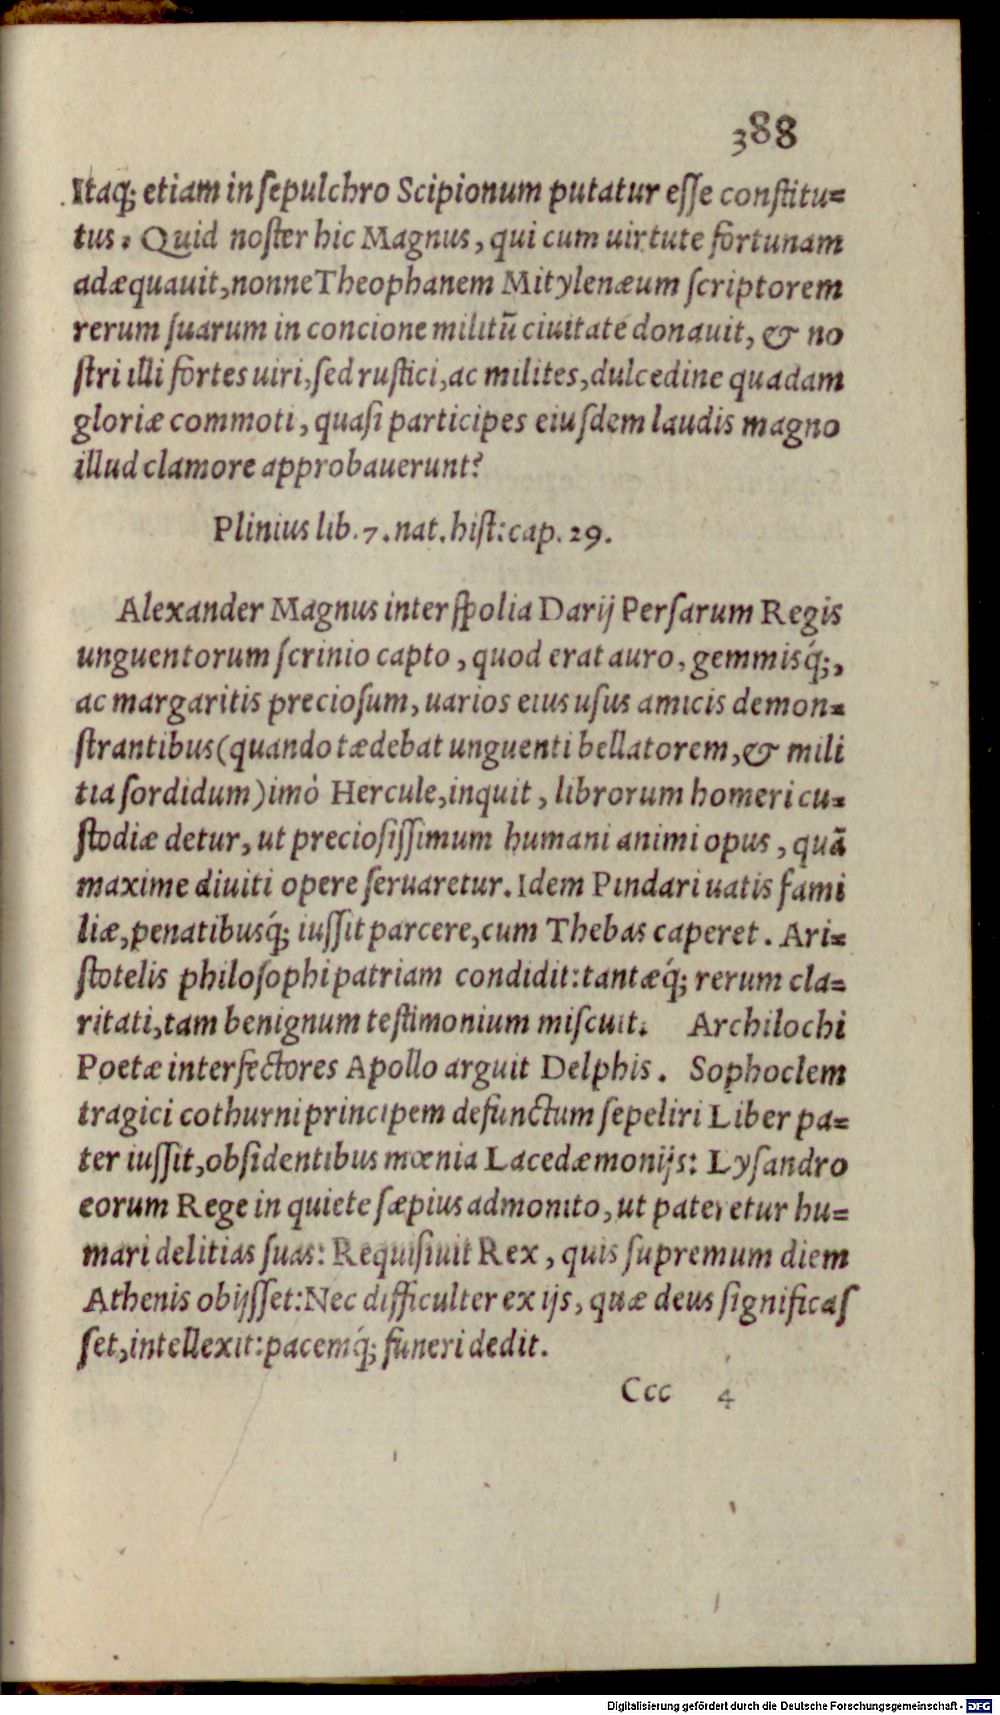 388
Itaq; etiam in ſepulchro Scipionum putatur eſſe conſtitu=
tus. Quid noſter hic Magnus, qui cum uirtute fortunam
adæquauit, nonne Theophanem Mitylenæum ſcriptorem
rerum ſuarum in concione militũ ciuitate donauit, & no
ſtri illi fortes uiri, ſed ruſtici, ac milites, dulcedine quadam
gloriæ commoti, quaſi participes eiuſdem laudis magno
illud clamore approbauerunt?
Plinius lib. 7. nat. hiſt: cap. 29.
Alexander Magnus inter ſpolia Darij Perſarum Regis
unguentorum ſcrinio capto, quod erat auro, gemmisq́;,
ac margaritis precioſum, uarios eius uſus amicis demon=
ſtrantibus (quando tædebat unguenti bellatorem, & mili
tia ſordidum) imò Hercule, inquit, librorum homeri cu=
ſtodiæ detur, ut precioſiſſimum humani animi opus, quã
maxime diuiti opere ſeruaretur. Idem Pindari uatis fami
liæ, penatibusq́; iuſſit parcere, cum Thebas caperet. Ari=
ſtotelis philoſophi patriam condidit: tantæq́; rerum cla=
ritati, tam benignum teſtimonium miſcuit. Archilochi
Poetæ interfectores Apollo arguit Delphis. Sophoclem
tragici cothurni principem defunctum ſepeliri Liber pa=
ter iuſſit, obſidentibus mœnia Lacedæmonijs: Lyſandro
eorum Rege in quiete ſæpius admonito, ut pateretur hu=
mari delitias ſuas: Requiſiuit Rex, quis ſupremum diem
Athenis obijſſet: Nec difficulter ex ijs, quæ deus ſignificaſ
ſet, intellexit: pacemq́; funeri dedit.
Ccc 4
Digitalisierung gefördert durch die Deutsche Forschungsgemeinschaft - DFG